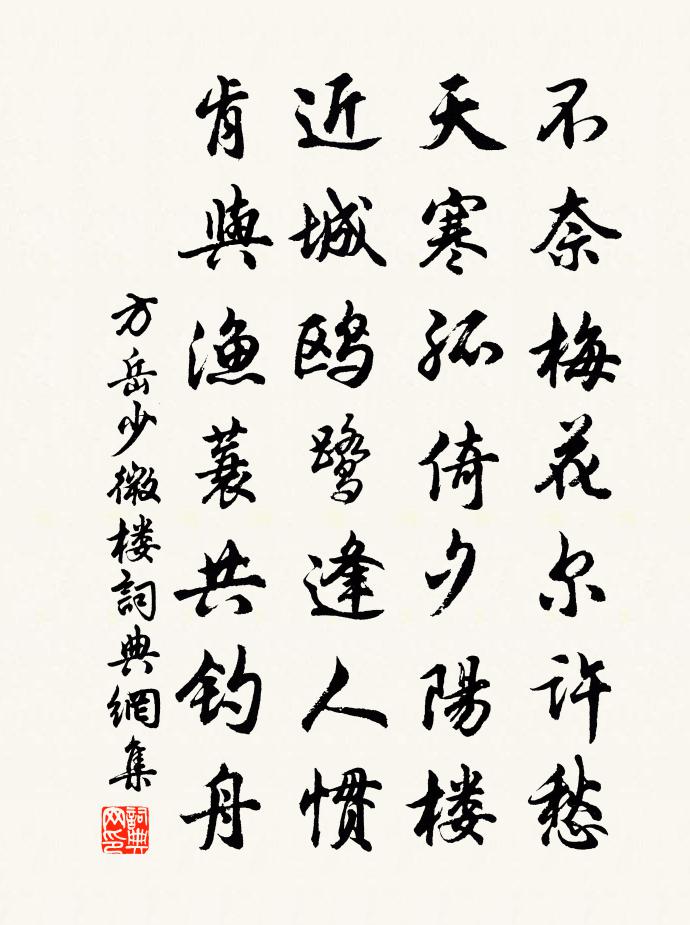 不奈梅花尔许愁
天寒孤倚夕陽楼
近城鸥鹭逢人惯
肯與渔蓑共钓舟
方岳少微楼詞典網集
詞典网印